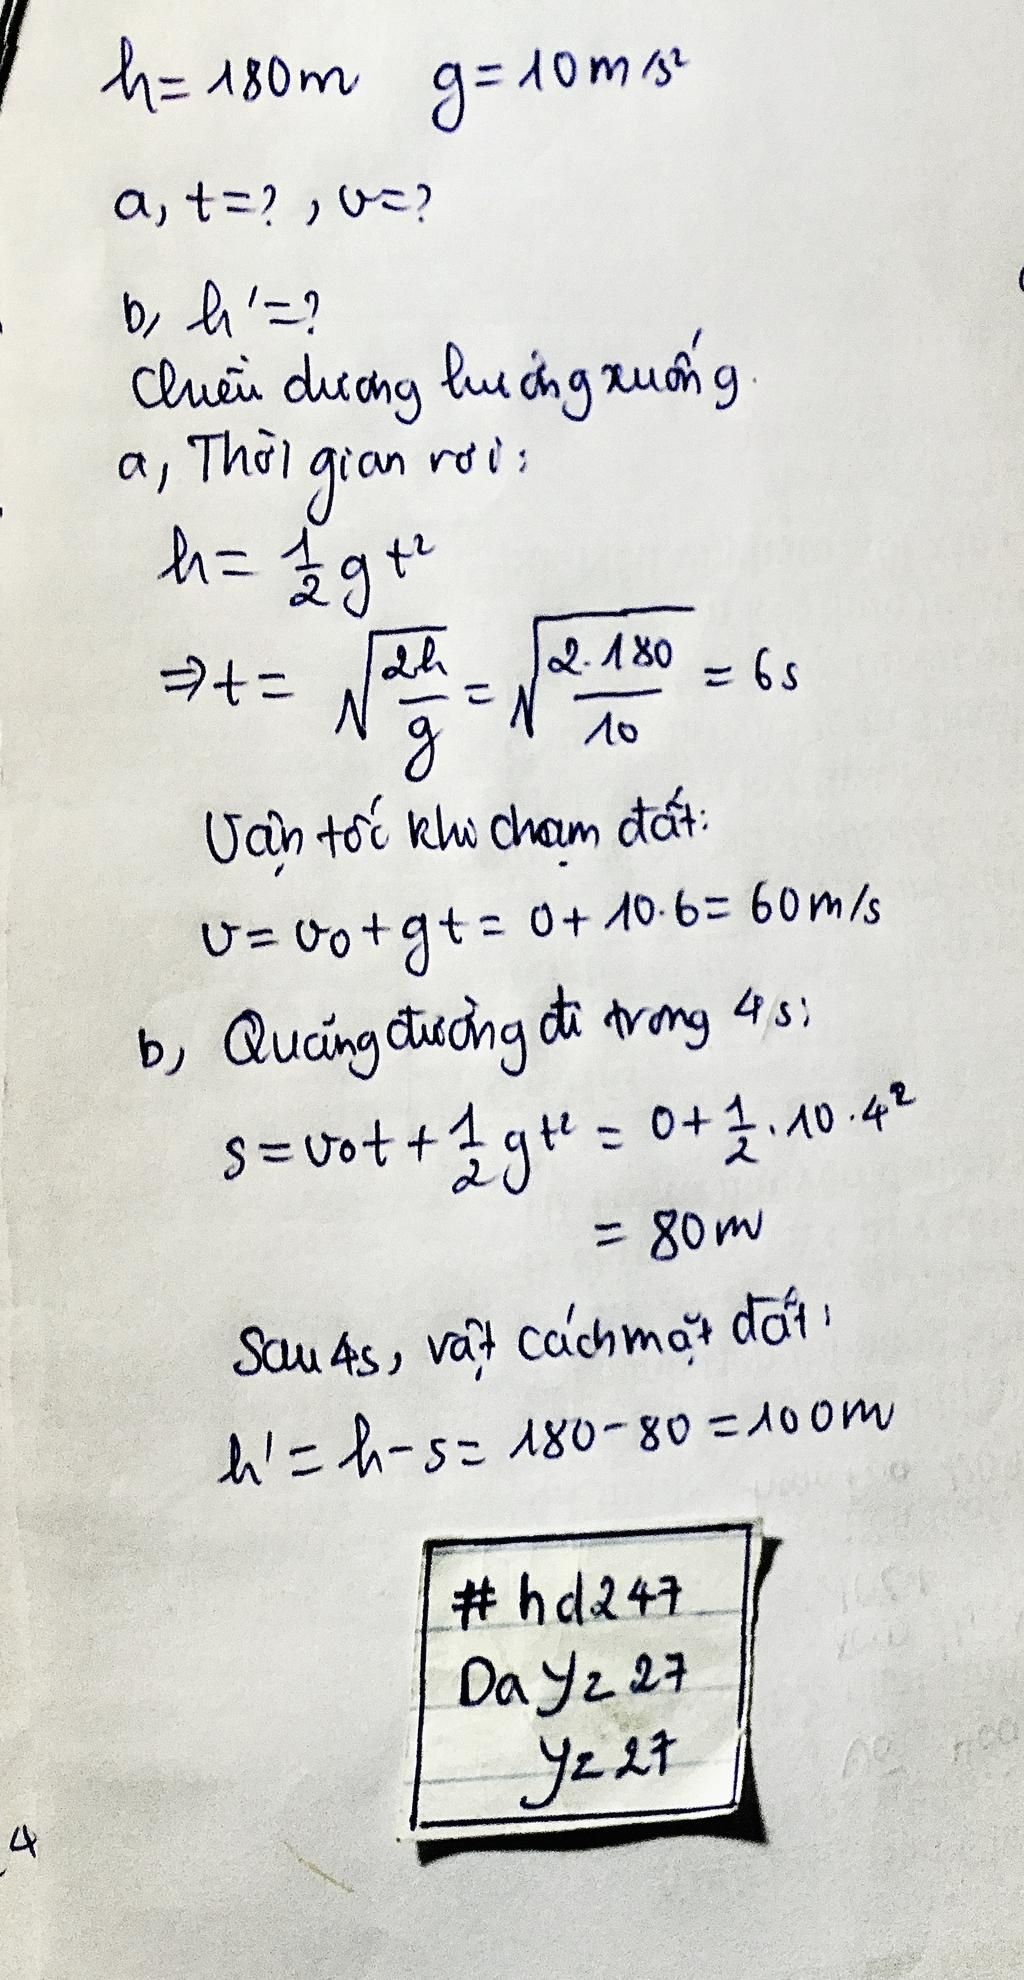 h = 180m g = 10m/s²
a, t = ? , v = ?
b, h' = ?
Chiều dương hướng xuống.
a, Thời gian rơi:
h = 1/2 gt²
⇒ t = √(2h/g) = √(2.180/10) = 6s
Vận tốc khi chạm đất:
v = v₀ + gt = 0 + 10.6 = 60m/s
b, Quãng đường đi trong 4s:
s = v₀t + 1/2 gt² = 0 + 1/2 . 10 . 4²
= 80m
Sau 4s, vật cách mặt đất:
h' = h - s = 180 - 80 = 100m
# hd247
Da yz 27
yz 27
4